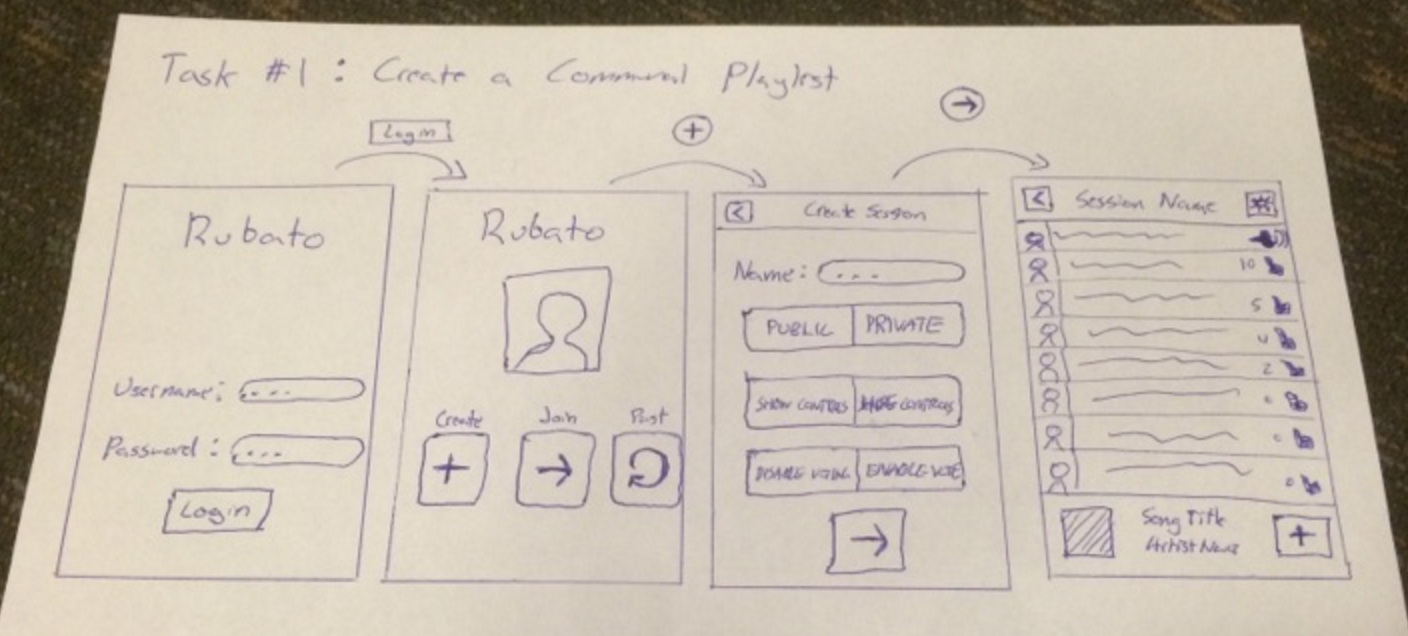 Task #1 : Create a Communal Playlist
Login
Rubato
Username: ...
Password: ...
Login
Rubato
Create Join Past
Create Session
Name: ...
PUBLIC PRIVATE
SHOW CONTROLS HIDE CONTROLS
DISABLE VOTING ENABLE VOTE
Session Name
10
5
4
2
0
0
0
Song Title
Artist Name